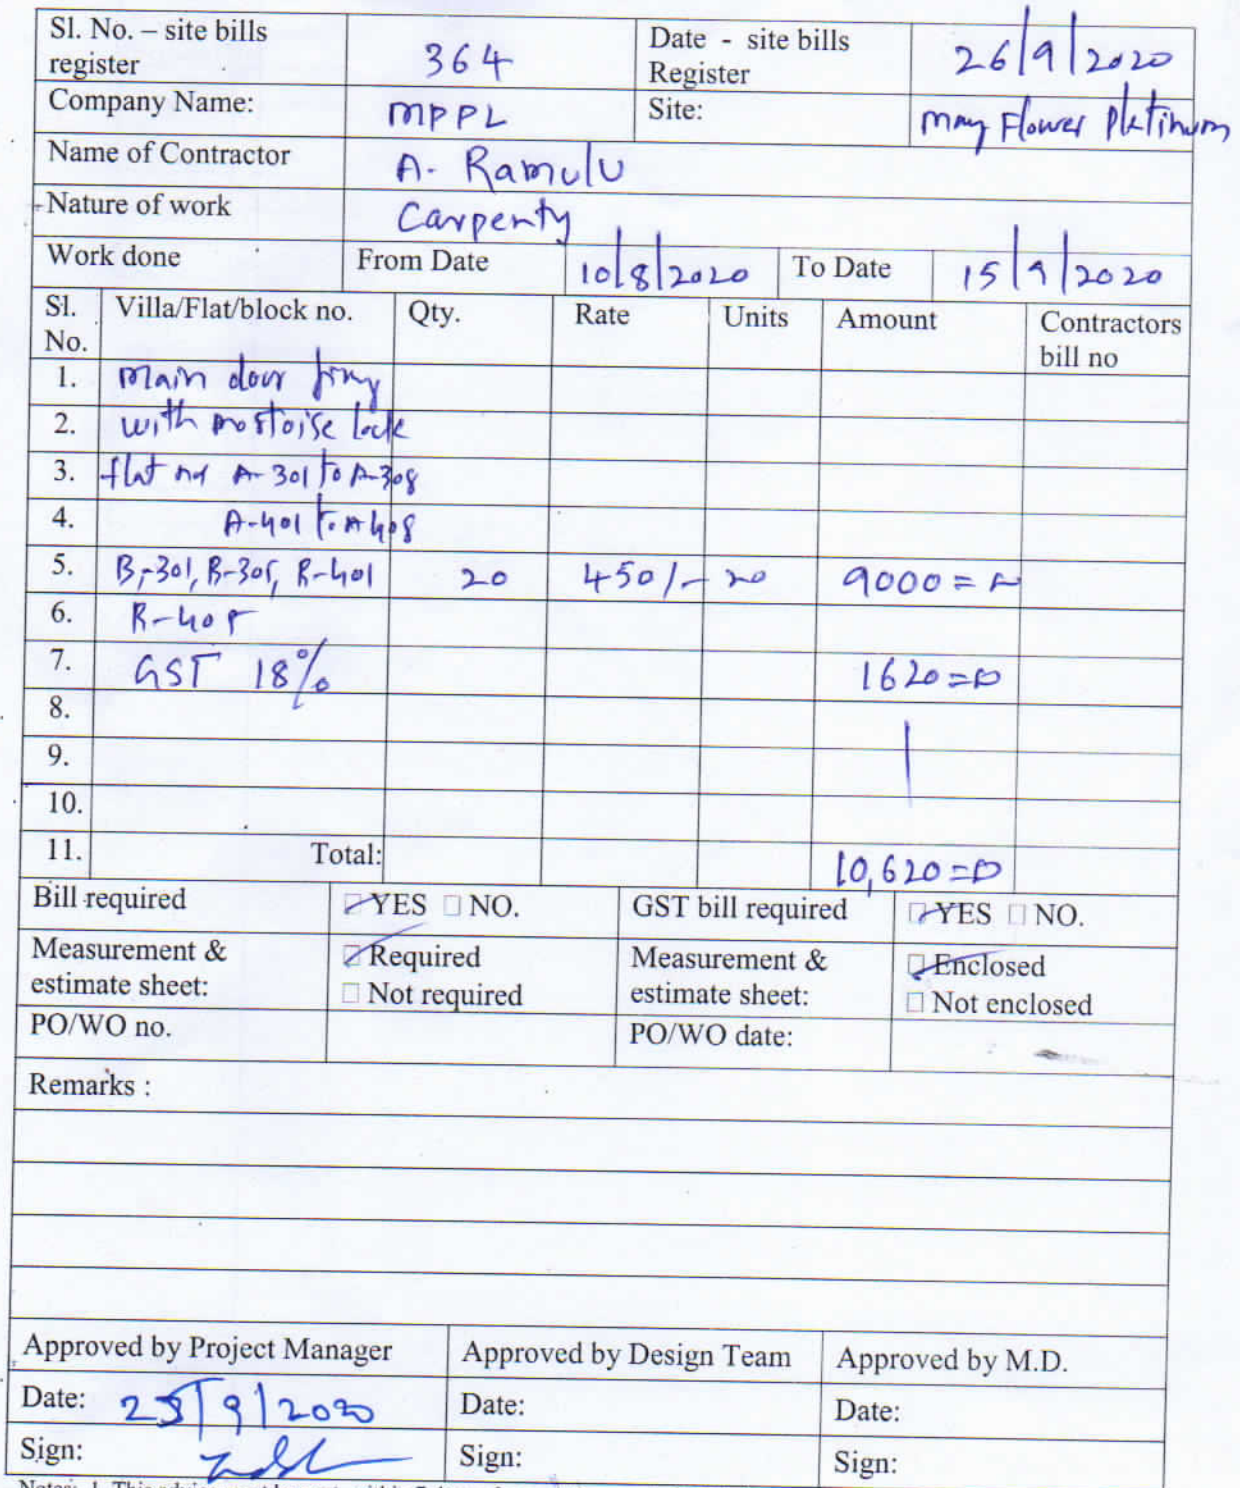 Sl. No. – site bills register 364 Date - site bills Register 26/9/2020
Company Name: MPPL Site: May Flower Platinum
Name of Contractor A. Ramulu
Nature of work Carpenty
Work done From Date 10/8/2020 To Date 15/9/2020
Sl. No. Villa/Flat/block no. Qty. Rate Units Amount Contractors bill no
1. Main door
2. with mostoise lock
3. flat no A-301 to A-308
4. A-401 to A408
5. B-301, B-305, B-401 20 450/- 20 9000=00
6. B-405
7. GST 18% 1620=00
8.
9.
10.
11. Total: 10,620=00
Bill required YES NO. GST bill required YES NO.
Measurement & estimate sheet: Required Not required Measurement & estimate sheet: Enclosed Not enclosed
PO/WO no. PO/WO date:
Remarks :
Approved by Project Manager Approved by Design Team Approved by M.D.
Date: /9/2020 Date: Date:
Sign: Sign: Sign: